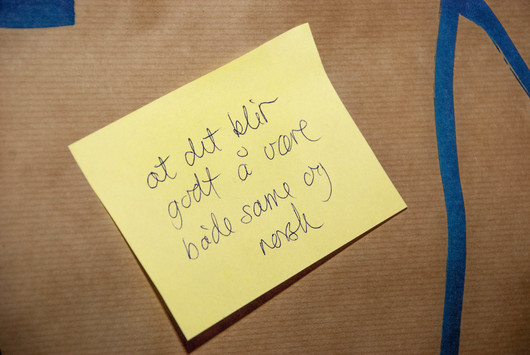 at det blir
godt å være
både same og
norsk